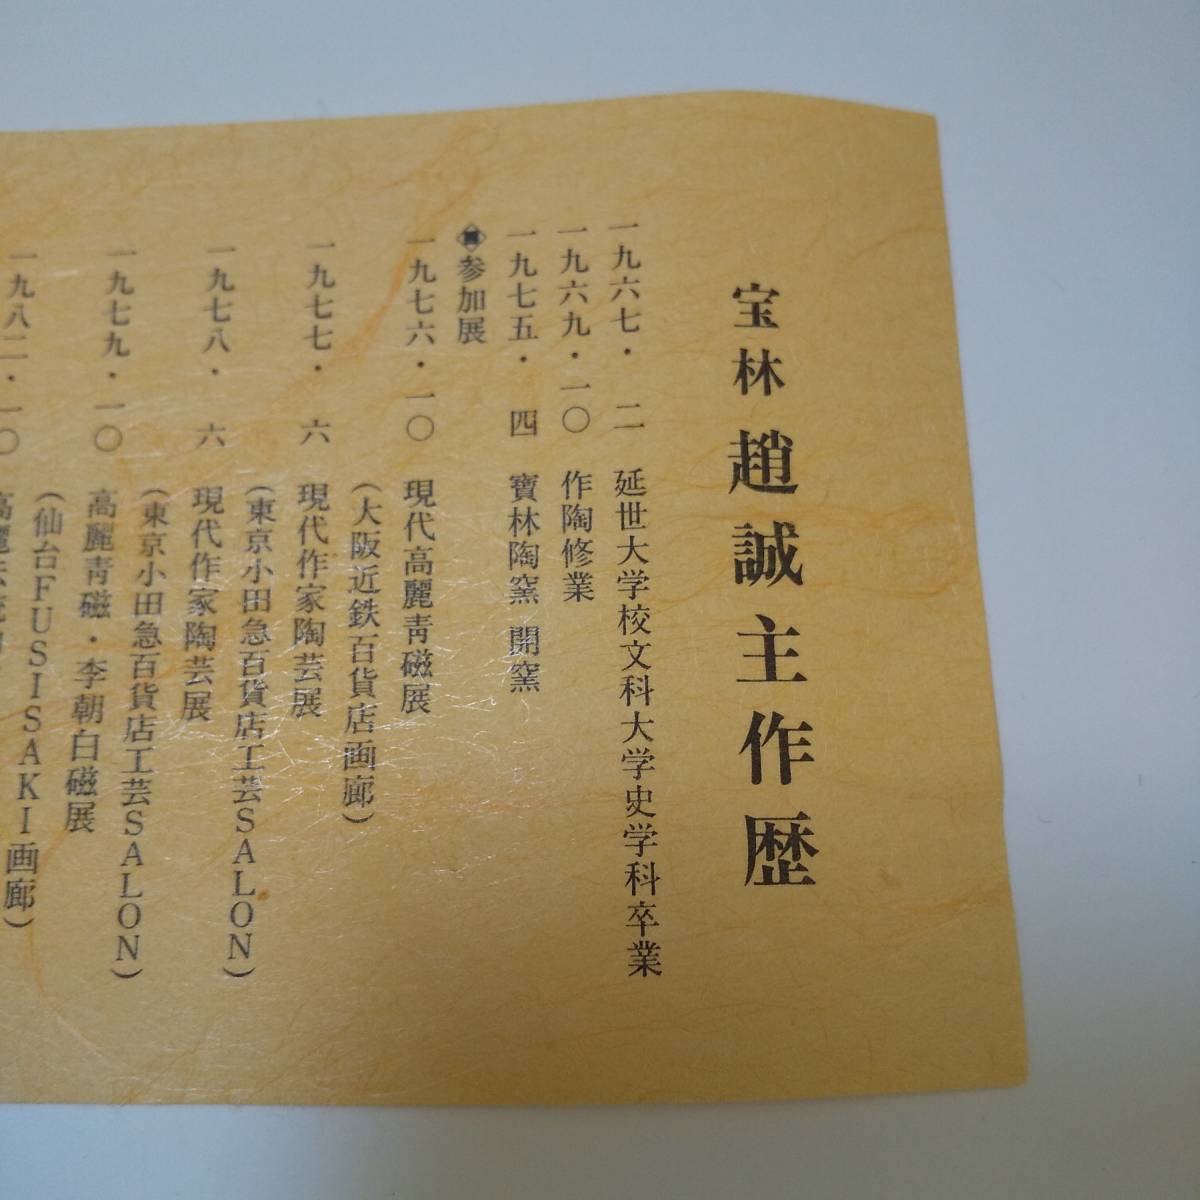 宝林 趙誠主作歴
一九六七・二 延世大学校文科大学史学科卒業
一九六九・一〇 作陶修業
一九七五・四 寶林陶窯 開窯
参加展
一九七六・一〇 現代高麗青磁展
(大阪近鉄百貨店画廊)
一九七七・六 現代作家陶芸展
(東京小田急百貨店工芸SALON)
一九七八・六 現代作家陶芸展
(東京小田急百貨店工芸SALON)
一九七九・一〇 高麗青磁・李朝白磁展
(仙台FUSISAKI画廊)
一九八二・一〇 高麗